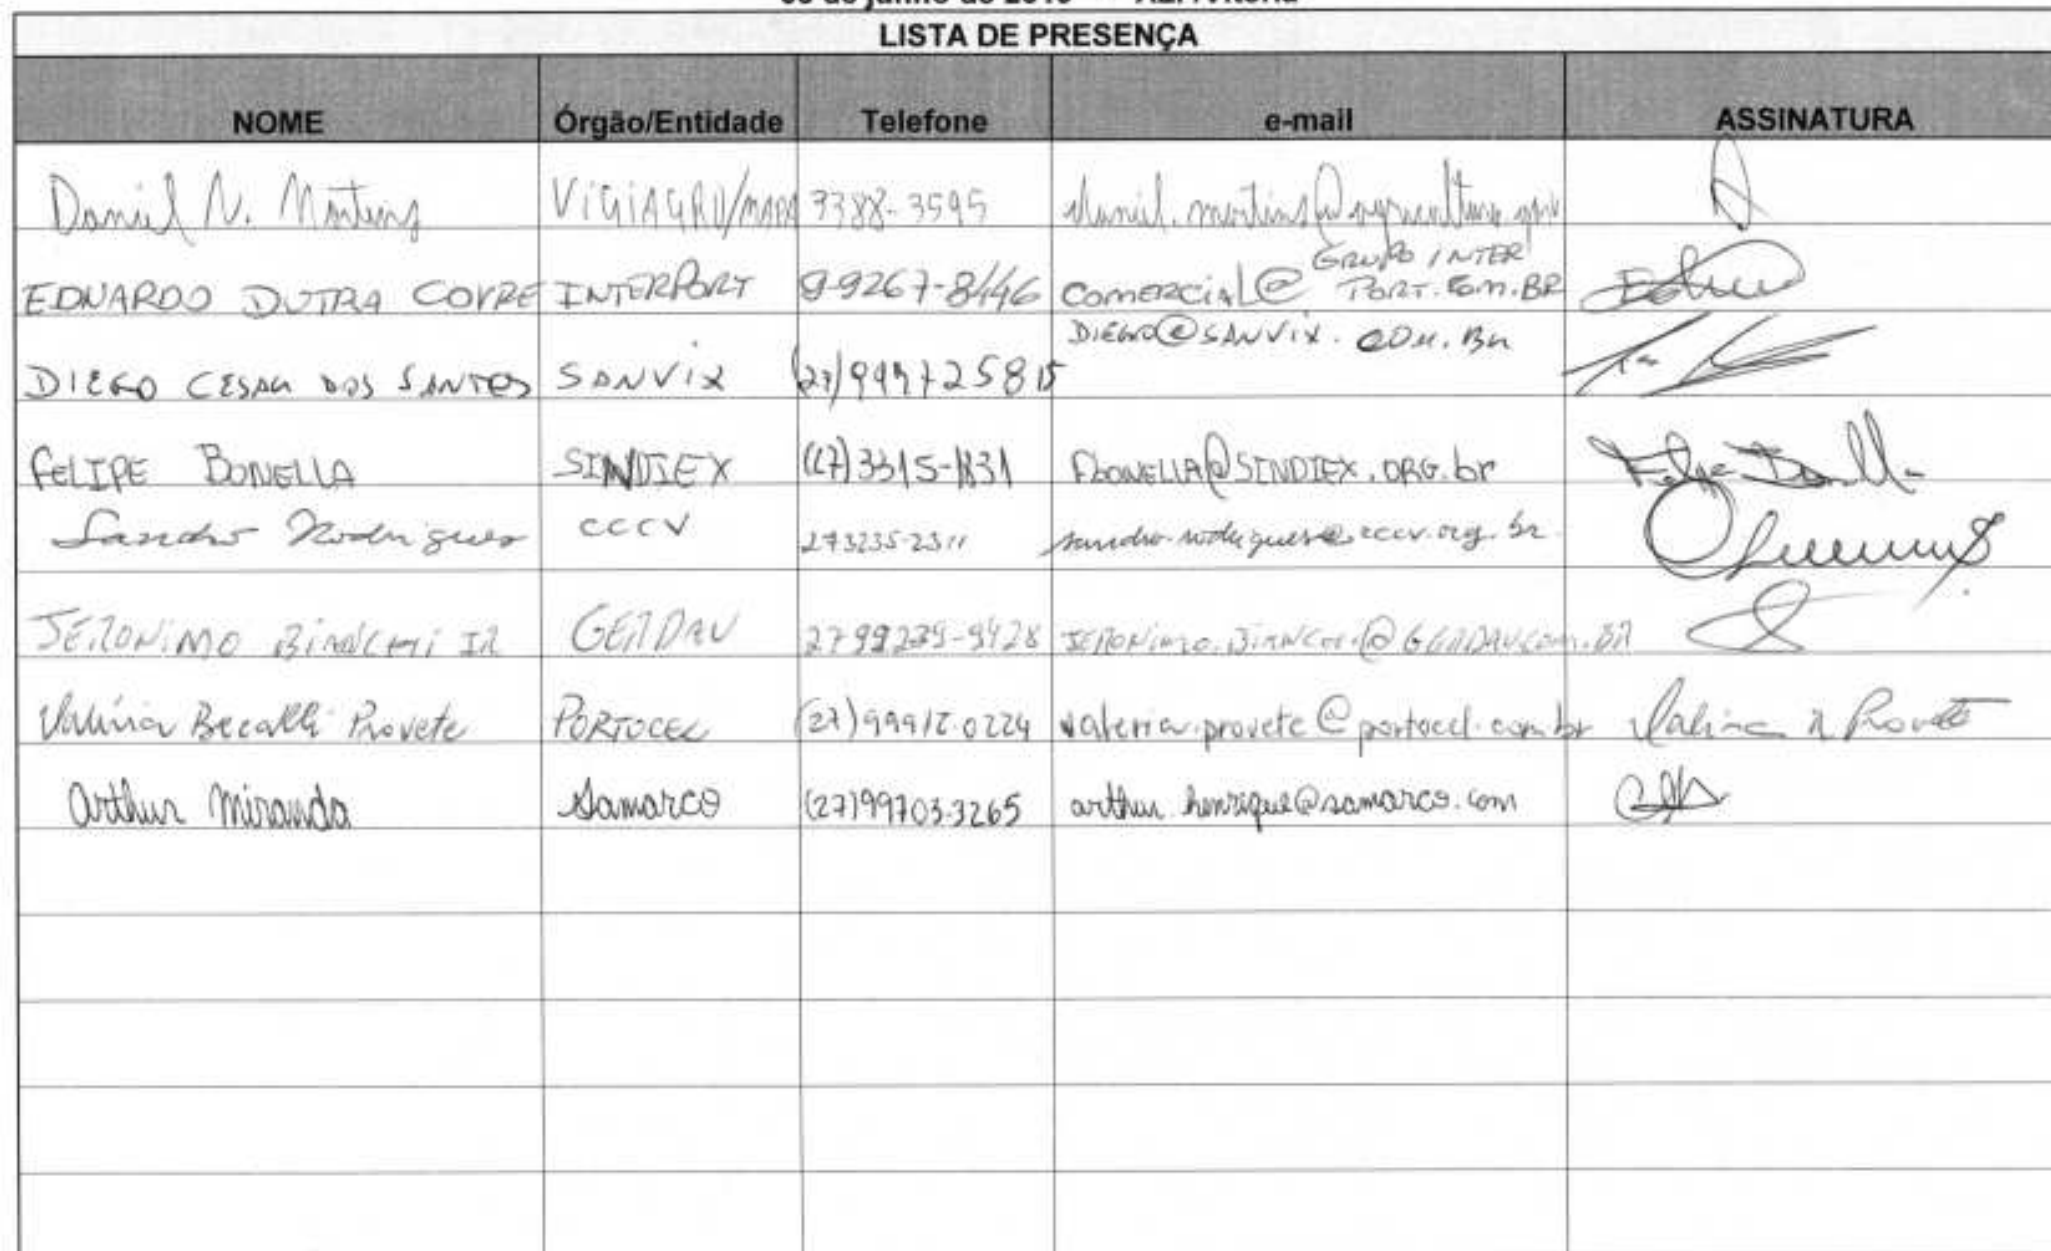 LISTA DE PRESENÇA
NOME Órgão/Entidade Telefone e-mail ASSINATURA
Daniel N. Martins VIGIAGRO/MAPA 3388-3595 daniel.martins@agricultura.gov
EDUARDO DUTRA COVRE INTERPORT 9-9267-8446 COMERCIAL@ GRUPO INTER
PORT.COM.BR
DIEGO CESAR DOS SANTOS SANVIX DIEGO@SANVIX.COM.BR
FELIPE BONELLA SINDIEX (27)3315-1831 FBONELLA@SINDIEX.ORG.br Felipe Bonella
Sandro Rodrigues CCCV 273235-2311 sandro.rodrigues@cccv.org.br
JERONIMO BIANCHI JR GERDAU JERONIMO.BIANCHI@GERDAU.COM.BR
Valéria Becalli Provete PORTOCEL (27)99912-0224 valeria.provete@portocel.com.br Provete
Arthur Miranda Samarco (27)99703-3265 arthur.henrique@samarco.com